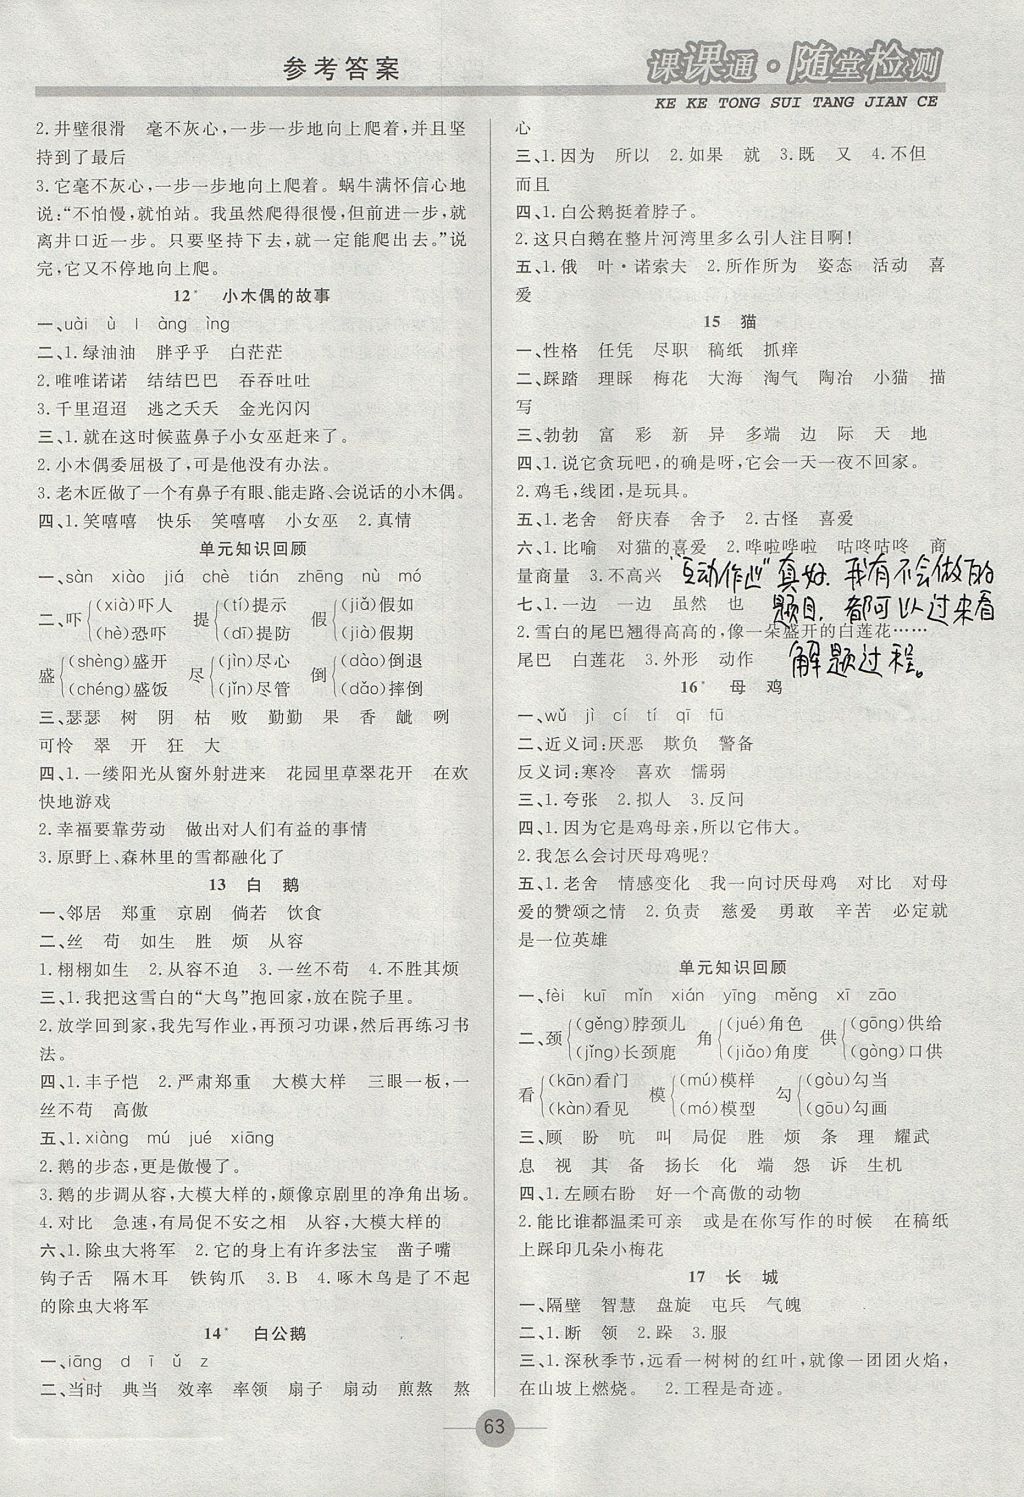 参考答案
课课通·随堂检测
KE KE TONG SUI TANG JIAN CE
2.井壁很滑 毫不灰心,一步一步地向上爬着,并且坚
持到了最后
3.它毫不灰心,一步一步地向上爬着。蜗牛满怀信心地
说:“不怕慢,就怕站。我虽然爬得很慢,但前进一步,就
离井口近一步。只要坚持下去,就一定能爬出去。”说
完,它又不停地向上爬。
12* 小木偶的故事
一、uài ù l àng ìng
二、1.绿油油 胖乎乎 白茫茫
2.唯唯诺诺 结结巴巴 吞吞吐吐
3.千里迢迢 逃之夭夭 金光闪闪
三、1.就在这时候蓝鼻子小女巫赶来了。
2.小木偶委屈极了,可是他没有办法。
3.老木匠做了一个有鼻子有眼、能走路、会说话的小木偶。
四、1.笑嘻嘻 快乐 笑嘻嘻 小女巫 2.真情
单元知识回顾
一、sàn xiào jiá chè tián zhēng nù mó
二、吓 (xià)吓人 (hè)恐吓 提 (tí)提示 (dī)提防 假 (jiǎ)假如 (jià)假期
盛 (shèng)盛开 (chéng)盛饭 尽 (jìn)尽心 (jǐn)尽管 倒 (dào)倒退 (dǎo)摔倒
三、瑟瑟 树 阴 枯 败 勤勤 果 香 龇 咧
可怜 翠 开 狂 大
四、1.一缕阳光从窗外射进来 花园里草翠花开 在欢
快地游戏
2.幸福要靠劳动 做出对人们有益的事情
3.原野上、森林里的雪都融化了
13 白 鹅
一、邻居 郑重 京剧 倘若 饮食
二、丝 苟 如生 胜 烦 从容
1.栩栩如生 2.从容不迫 3.一丝不苟 4.不胜其烦
三、1.我把这雪白的“大鸟”抱回家,放在院子里。
2.放学回到家,我先写作业,再预习功课,然后再练习书
法。
四、1.丰子恺 2.严肃郑重 大模大样 三眼一板,一
丝不苟 高傲
五、1.xiàng mú jué xiāng
2.鹅的步态,更是傲慢了。
3.鹅的步调从容,大模大样的,颇像京剧里的净角出场。
4.对比 急速,有局促不安之相 从容,大模大样的
六、1.除虫大将军 2.它的身上有许多法宝 凿子嘴
钩子舌 隔木耳 铁钩爪 3.B 4.啄木鸟是了不起
的除虫大将军
14* 白公鹅
一、iāng d ī ǔ z
二、当时 典当 效率 率领 扇子 扇动 煎熬 熬
心
三、1.因为 所以 2.如果 就 3.既 又 4.不但
而且
四、1.白公鹅挺着脖子。
2.这只白鹅在整片河湾里多么引人注目啊!
五、1.俄 叶·诺索夫 2.所作所为 姿态 活动 喜
爱
15 猫
一、性格 任凭 尽职 稿纸 抓痒
二、踩踏 理睬 梅花 大海 淘气 陶冶 小猫 描
写
三、勃勃 富 彩 新 异 多端 边 际 天 地
四、1.说它贪玩吧,的确是呀,它会一天一夜不回家。
2.鸡毛,线团,是玩具。
五、1.老舍 舒庆春 舍予 2.古怪 喜爱
六、1.比喻 对猫的喜爱 2.哗啦哗啦 咕咚咕咚 商
量商量 3.不高兴
“互动作业”真好.我有不会做的
七、1.一边 一边 虽然 也
题目,都可以过来看
2.雪白的尾巴翘得高高的,像一朵盛开的白莲花……
尾巴 白莲花 3.外形 动作
解题过程。
16* 母 鸡
一、wǔ jì cí tí qī fū
二、近义词:厌恶 欺负 警备
反义词:寒冷 喜欢 懦弱
三、1.夸张 2.拟人 3.反问
四、1.因为它是鸡母亲,所以它伟大。
2.我怎么会讨厌母鸡呢?
五、1.老舍 情感变化 我一向讨厌母鸡 对比 对母
爱的赞颂之情 2.负责 慈爱 勇敢 辛苦 必定就
是一位英雄
单元知识回顾
一、fèi kuī mǐn xián yīng měng xī zāo
二、颈 (gěng)脖颈儿 (jǐng)长颈鹿 角 (jué)角色 (jiǎo)角度 供 (gōng)供给 (gòng)口供
看 (kān)看门 (kàn)看见 模 (mú)模样 (mó)模型 勾 (gòu)勾当 (gōu)勾画
三、顾 盼 吭 叫 局促 胜 烦 条 理 耀武
息 视 其 备 扬长 化 端 怨 诉 生机
四、1.左顾右盼 好一个高傲的动物
2.能比谁都温柔可亲 或是在你写作的时候 在稿纸
上踩印几朵小梅花
17 长 城
一、隔壁 智慧 盘旋 屯兵 气魄
二、1.断 领 2.跺 3.服
三、1.深秋季节,远看一树树的红叶,就像一团团火焰,
在山坡上燃烧。 2.工程是奇迹。
63